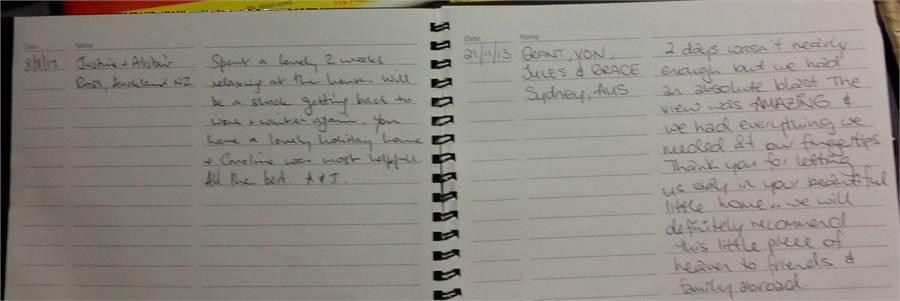 Date Name
8/8/13 Justine + Alistair
Ross, Auckland NZ
Spent a lovely 2 weeks
relaxing at the house. Will
be a shock getting back to
work + winter again. You
have a lovely holiday home
+ Caroline was most helpful.
All the best. A & J.
Date Name
21/11/13 GRANT, VON,
JULES & GRACE
Sydney, AUS
2 days wasn't nearly
enough but we had
an absolute blast. The
view was AMAZING &
we had everything we
needed at our fingertips.
Thank you for letting
us stay in your beautiful
little home... we will
definitely recommend
this little piece of
heaven to friends &
family abroad.